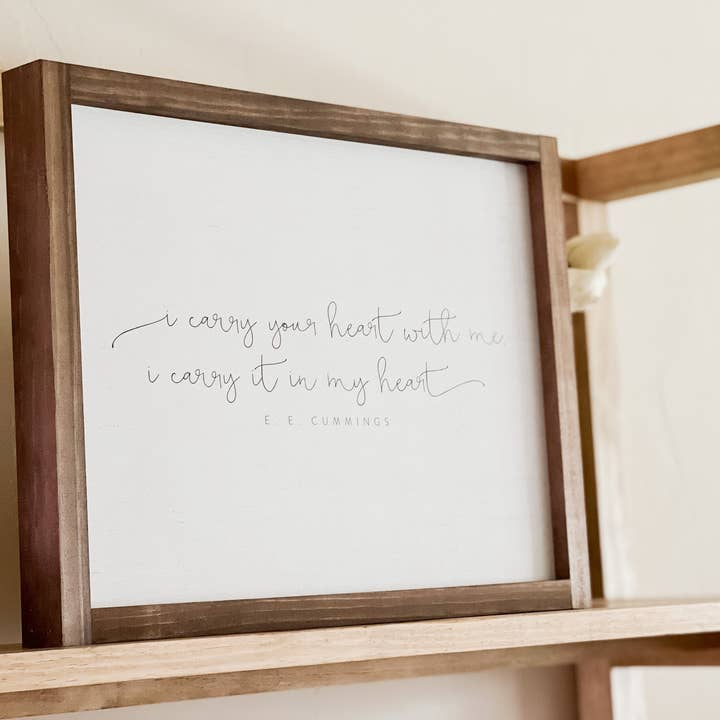 i carry your heart with me,
i carry it in my heart
E. E. CUMMINGS